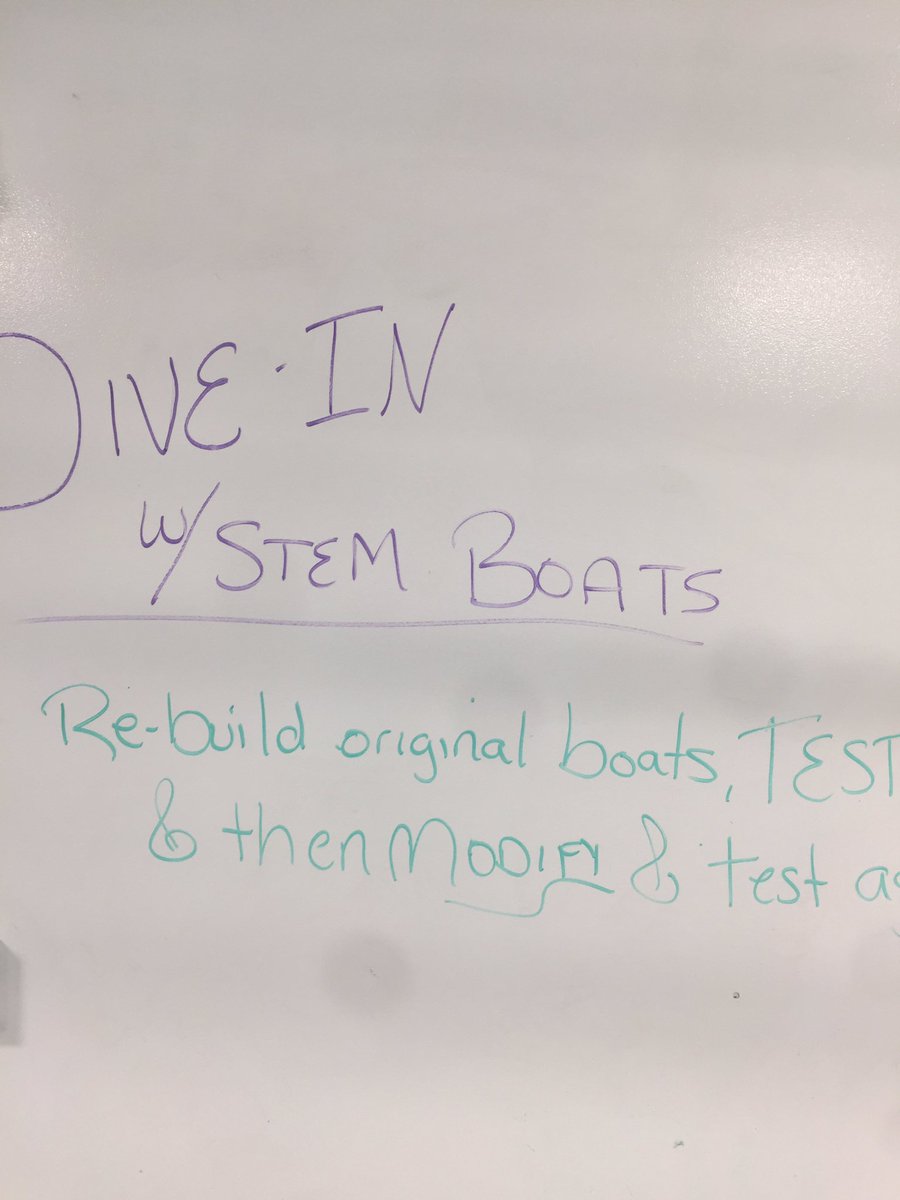 DIVE-IN
w/ STEM BOATS
Re-build original boats, TEST
& then MODIFY & test